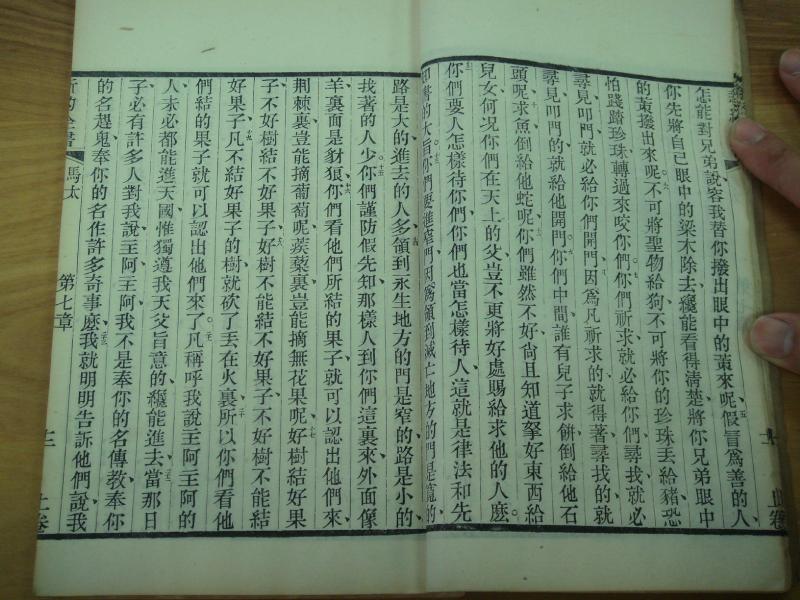 怎能對兄弟說容我替你撥出眼中的莿來呢假冒爲善的人
你先將自己眼中的梁木除去纔能看得淸楚將你兄弟眼中
的莿撥出來呢不可將聖物給狗不可將你的珍珠丟給豬恐
怕踐踏珍珠轉過來咬你們你們祈求就必給你們尋找就必
尋見叩門就必給你們開門因爲凡祈求的就得著尋找的就
尋見叩門的就給他開門你們中間誰有兒子求餅倒給他石
頭呢求魚倒給他蛇呢你們雖然不好尙且知道拏好東西給
兒女何况你們在天上的父豈不更將好處賜給求他的人麽
你們要人怎樣待你們你們也當怎樣待人這就是律法和先
知書的大旨你們要進窄門因爲領到滅亡地方的門是寬的
路是大的進去的人多領到永生地方的門是窄的路是小的
找著的人少你們謹防假先知那樣人到你們這裏來外面像
羊裏面是豺狼你們看他們所結的果子就可以認出他們來
荆棘裏豈能摘葡萄呢蒺藜裏豈能摘無花果呢好樹結好果
子不好樹結不好果子好樹不能結不好果子不好樹不能結
好果子凡不結好果子的樹就砍了丟在火裏所以你們看他
們結的果子就可以認出他們來了凡稱呼我說主阿主阿的
人未必都能進天國惟獨遵我天父旨意的纔能進去當那日
子必有許多人對我說主阿主阿我不是奉你的名傳教奉你
的名趕鬼奉你的名作許多奇事麽我就明明告訴他們說我
新約全書 馬太 第七章 十二 上卷